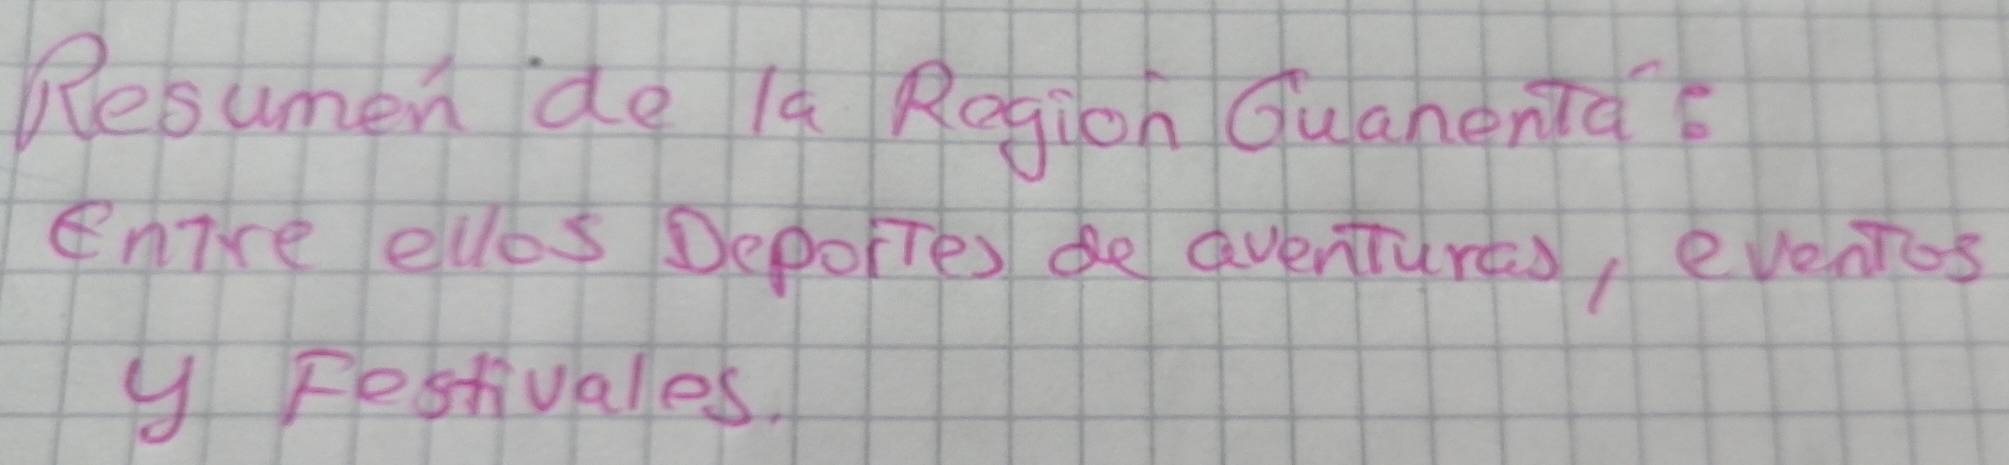 Resumén de la Región Guanentá:
Entre ellos Deportes de aventuras, eventos
y Festivales.